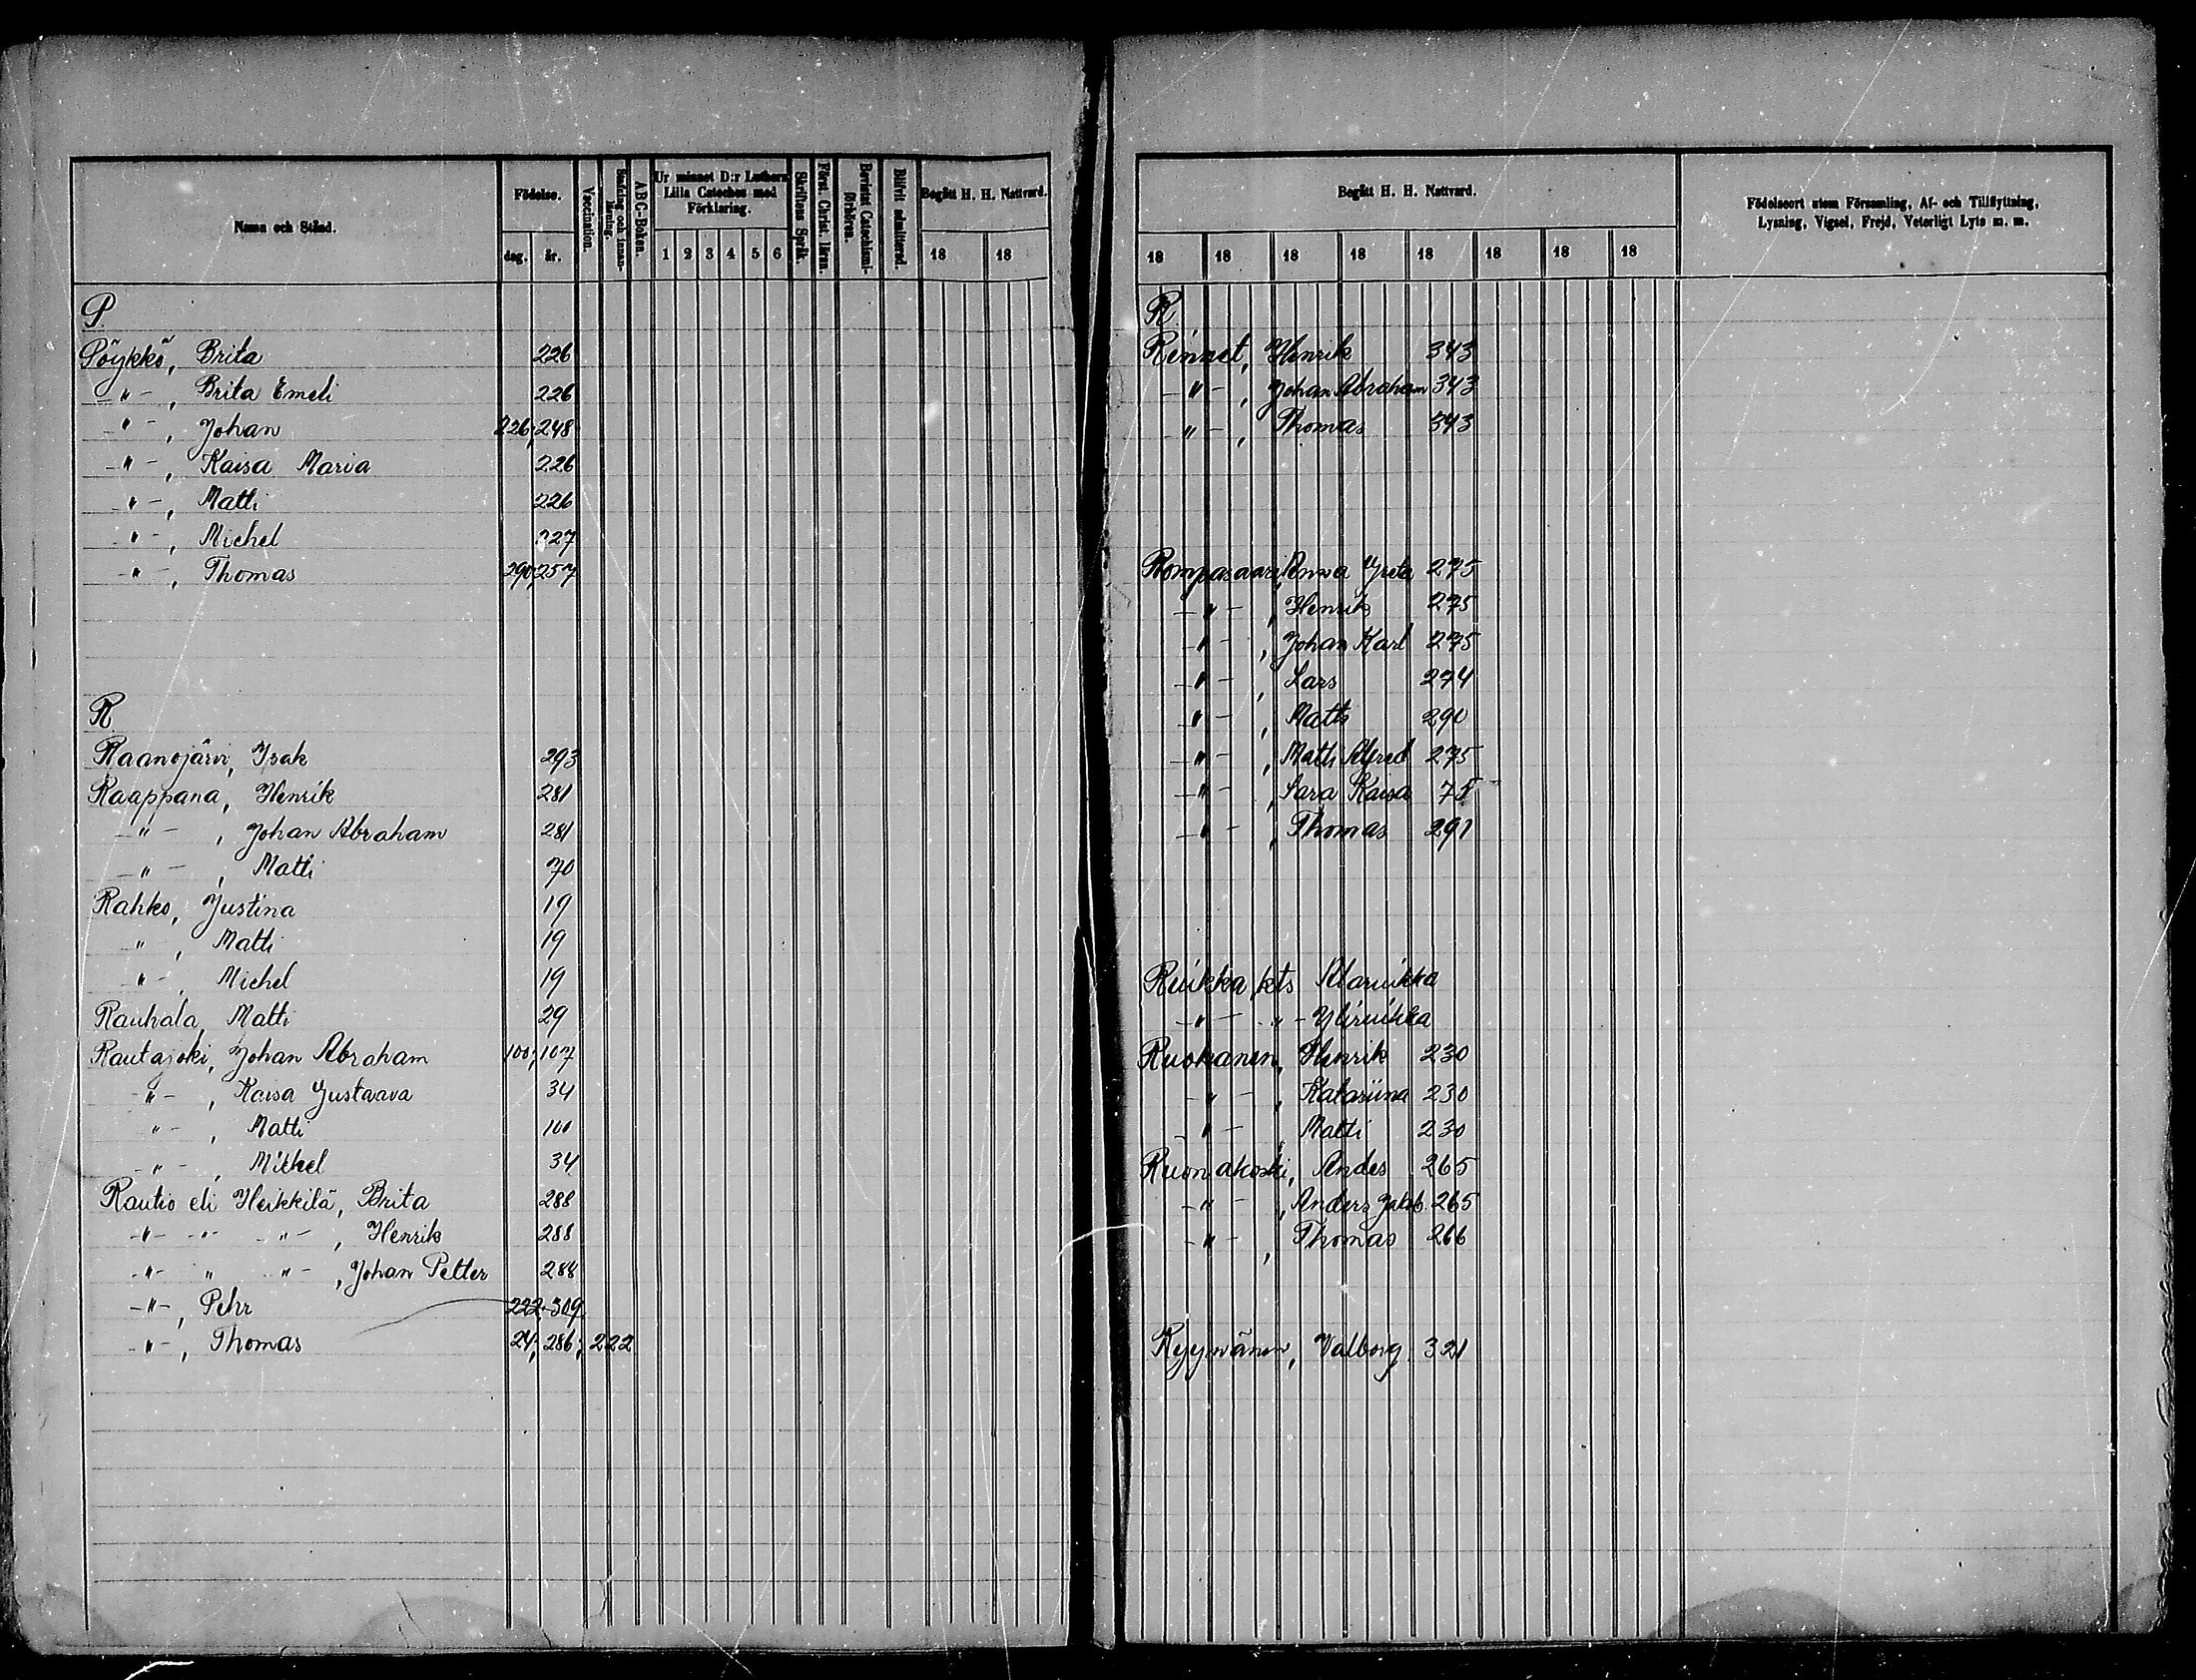 Namn och Stånd.
Födelse.
dag. år.
Vaccination.
Stafning och innan-läsning.
ABC-Boken.
Ur minnet D:r Luthers Lilla Cateches med Förklaring.
1 2 3 4 5 6
Skriftens Språk.
Först. Christ. lären.
Bevistat Catechismi-förhören.
Blifvit admitterad.
Begått H. H. Nattvard.
18 18
P.
Pöykkö, Brita 226
-"-, Brita Emeli 226
-"-, Johan 226; 248
-"-, Kaisa Maria 226
-"-, Matti 226
-"-, Michel 227
-"-, Thomas 290; 257
R.
Raanojärvi, Isak 293
Raappana, Henrik 281
-"-, Johan Abraham 281
-"-, Matti 70
Rahko, Justina 19
-"-, Matti 19
-"-, Michel 19
Rauhala, Matti 29
Rautajoki, Johan Abraham 100; 107
-"-, Kaisa Gustaava 34
-"-, Matti 100
-"-, Mikkel 34
Rautio eli Heikkilä, Brita 288
-"- -"- -"-, Henrik 288
-"- " -"-, Johan Petter 288
-"-, Pehr 222; 309
-"-, Thomas 24; 286; 222
Begått H. H. Nattvard.
18 18 18 18 18 18 18 18
Födelseort utom Församling, Af- och Tillflyttning, Lysning, Vigsel, Frejd, Veterligt Lyte m. m.
R.
Rennet, Henrik 343
-"-, Johan Abraham 343
-"-, Thomas 343
Rompasaari, Anna Greta 275
-"-, Henrik 275
-"-, Johan Karl 275
-"-, Lars 274
-"-, Matts 290
-"-, Matti Alfred 275
-"-, Sara Kaisa 75
-"-, Thomas 291
Ruikka, kts Alaruikka
-"- -"- Yliruikka
Ruokanen, Henrik 230
-"-, Katariina 230
-"-, Matti 230
Ruonakoski, Andes 265
-"-, Anders Jakob. 265
-"-, Thomas 266
Valborg. 321